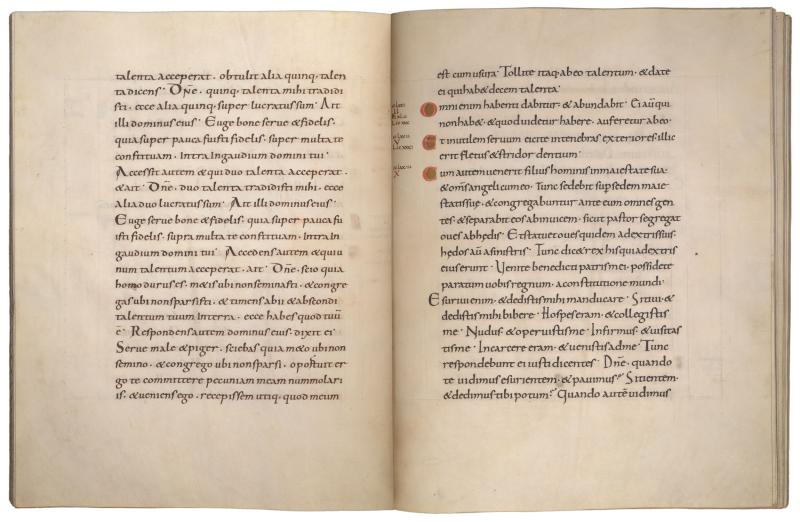 talenta acceperat · obtulit alia quinq · talen
ta dicens · Dn̄e · quinq · talenta mihi tradidi
sti · ecce alia quinq · super lucratus sum · Ait
illi dominus eius · Euge bone serve & fidelis ·
quia super pauca fuisti fidelis · super multa te
constituam · intra in gaudium domini tui ·
Accessit autem & qui duo talenta acceperat ·
& ait · Dn̄e · duo talenta tradidisti mihi · ecce
alia duo lucratus sum · Ait illi dominus eius ·
Euge serve bone & fidelis · quia super pauca fu
isti fidelis · supra multa te constituam · intra in
gaudium domini tui · Accedens autem & qui u
num talentum acceperat · ait · Dn̄e · scio quia
homo durus es · m&is ubi non seminasti · & congre
gas ubi non sparsisti · & timens abii & abscondi
talentum tuum in terra · ecce habes quod tuū
ē · Respondens autem dominus eius · dixit ei ·
Serve male & piger · sciebas quia m&o ubi non
semino · & congrego ubi non sparsi · oportuit er
go te committere pecuniam meam nummolari
is · & veniens ego · recepissem utiq · quod meum
est cum usura · Tollite itaq · ab eo talentum · & date
ei qui hab& decem talenta ·
Omni enim habenti dabitur · & abundabit · Ei aū qui
non hab& · & quod videtur habere · auferetur ab eo ·
Et inutilem servum eicite in tenebras exteriores · illic
erit fletus & stridor dentium ·
Cum autem venerit filius hominis in maiestate sua ·
& om̄s angeli cum eo · Tunc sedebit sup sedem maie
statis suę · & congregabuntur ante eum omnes gen
tes · & separabit eos ab invicem · sicut pastor segregat
oves ab hędis · Et statuet oves quidem a dextris suis ·
hędos aū a sinistris · Tunc dic& rex his qui a dextris
eius erunt · Venite benedicti patris mei · possidete
paratum vobis regnum · a constitutione mundi ·
Esurivi enim · & dedistis mihi manducare · Sitivi · &
dedistis mihi bibere · Hospes eram · & collegistis
me · Nudus · & operuistis me · Infirmus · & visitas
tis me · In carcere eram · & venistis ad me · Tunc
respondebunt ei iusti dicentes · Dn̄e · quando
te vidimus esurientem · & pavimus · Sitientem ·
& dedimus tibi potum · Quando autē vidimus